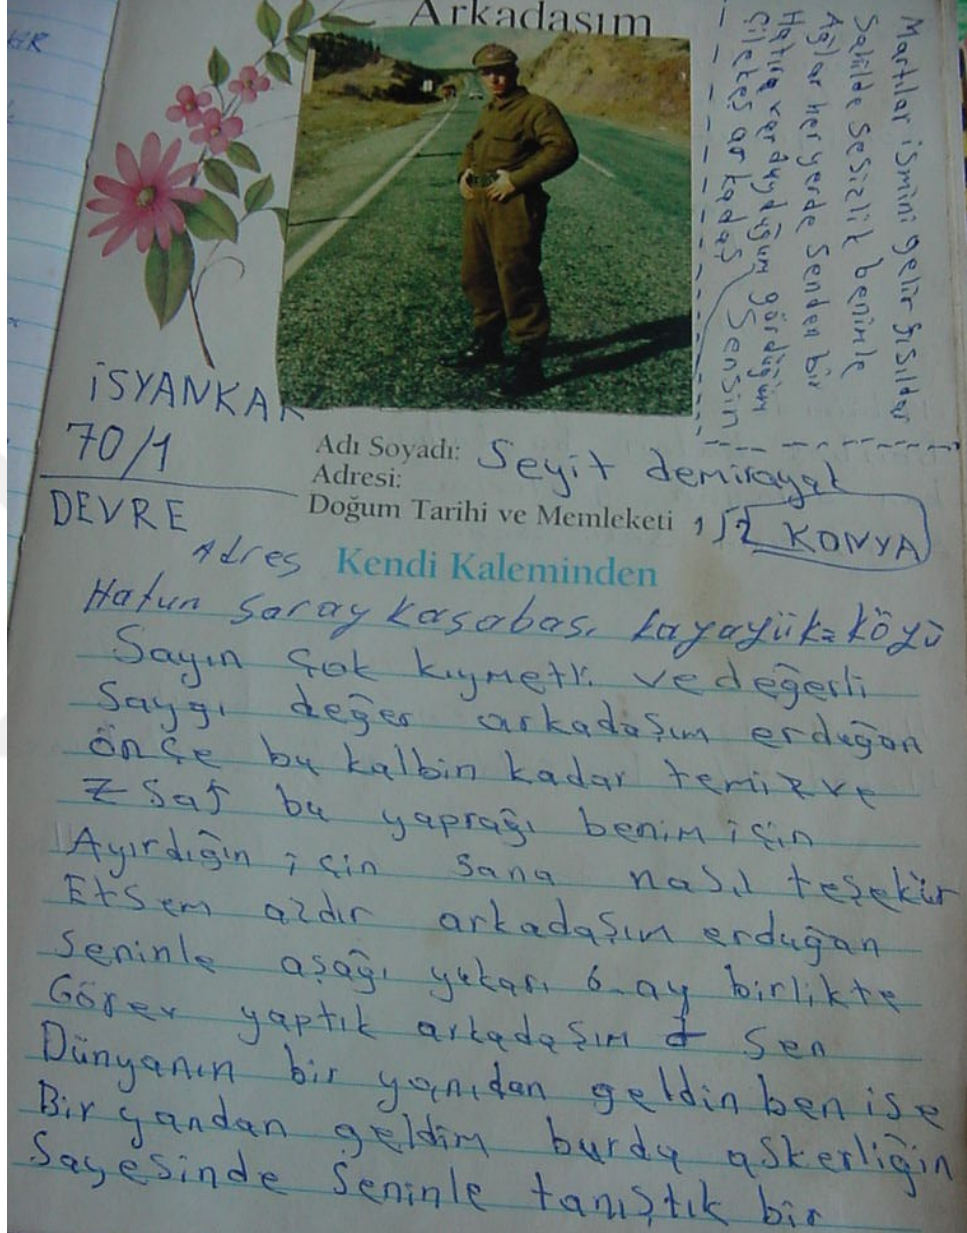 Arkadaşım
Martılar ismini gelir fısıldar
Sahilde sesizlik benimle
Ağlar her yerde senden bir
Hatıra var duyduğum gördüğüm
Çileteş arkadaş sensin
İSYANKAR
70/1
DEVRE
Adı Soyadı: Seyit demirayak
Adresi:
Doğum Tarihi ve Memleketi KONYA
Adres
Kendi Kaleminden
Hatun Saray kasabası kayayük köyü
Sayın çok kıymetli ve değerli
Saygı değer arkadaşım erduğan
önçe bu kalbin kadar temiz ve
saf bu yaprağı benim için
Ayırdığın için sana nasıl teşekür
Etsem azdır arkadaşım erduğan
seninle aşağı yukarı 6-ay birlikte
Görev yaptık arkadaşım sen
Dünyanın bir yanıdan geldin ben ise
Bir yandan geldim burda askerliğin
Sayesinde seninle tanıştık bir